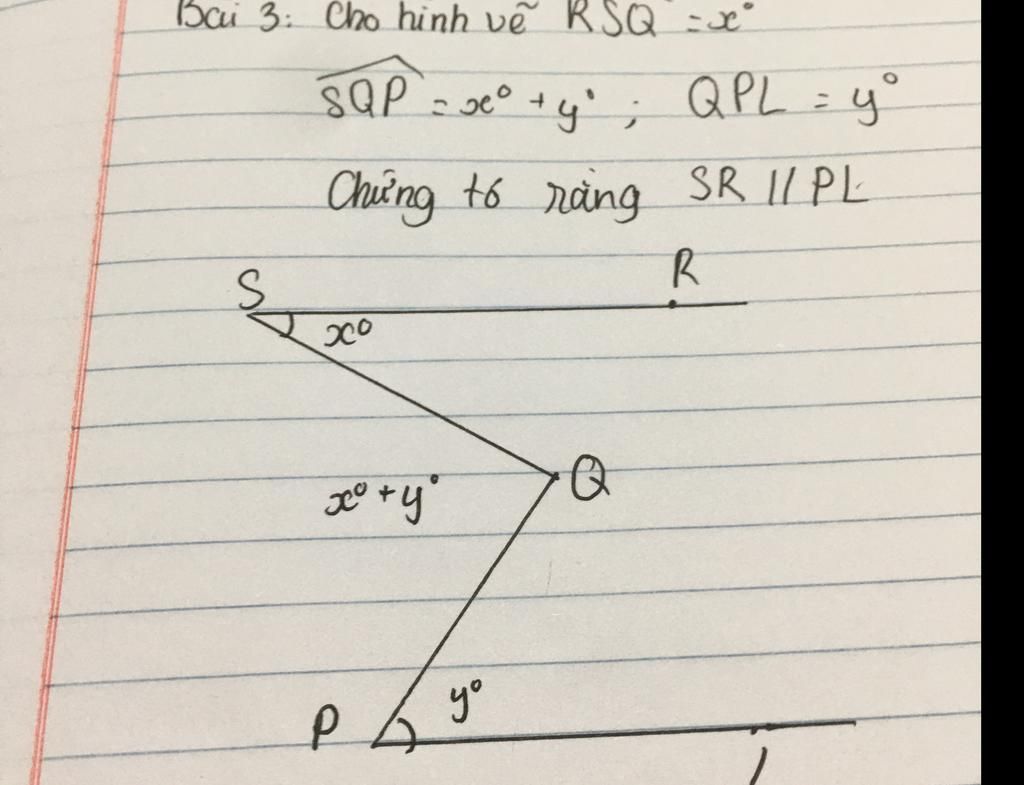 Bài 3: Cho hình vẽ RSQ = x°
SQP = x° + y° ; QPL = y°
Chứng tỏ rằng SR // PL
S
R
x°
Q
x° + y°
y°
P